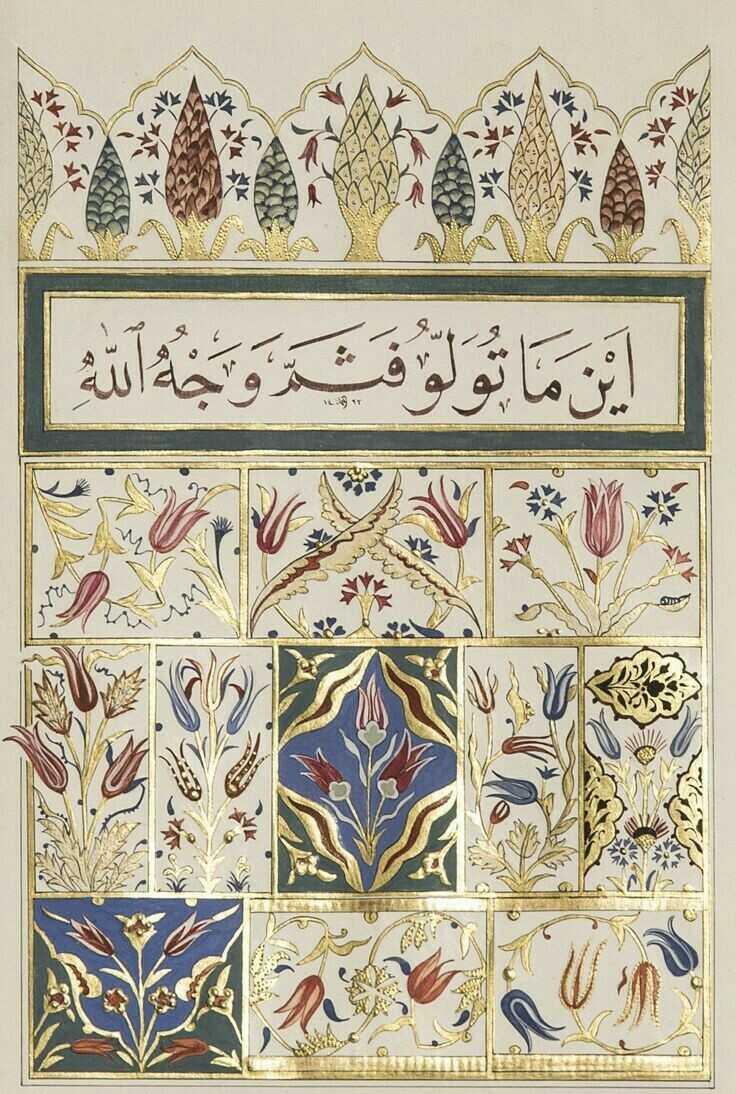 اَيْنَ مَا تُوَلّوُ فَثَمَّ وَجْهُ ٱللّٰهُ